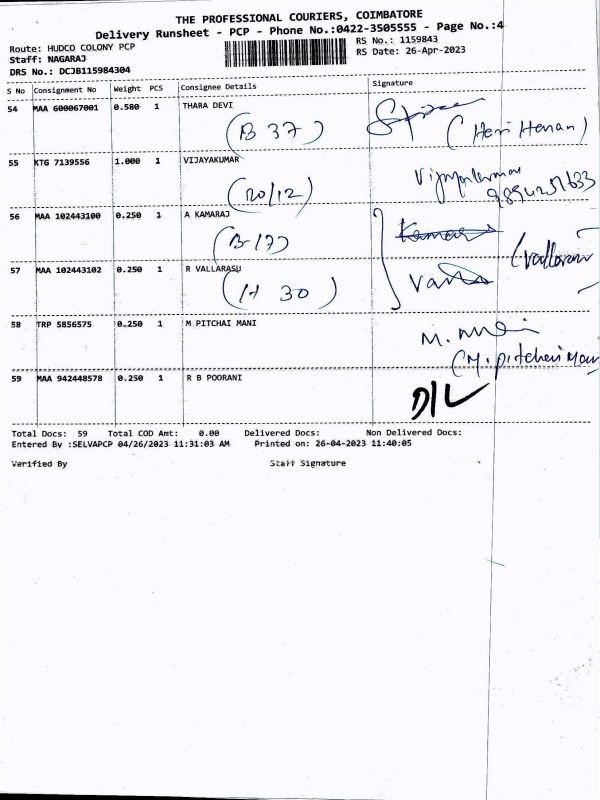 THE PROFESSIONAL COURIERS, COIMBATORE
Delivery Runsheet - PCP - Phone No.:0422-3505555 - Page No.:4
Route: HUDCO COLONY PCP
RS No.: 1159843
Staff: NAGARAJ
RS Date: 26-Apr-2023
DRS No.: DCJB115984304
S No Consignment No Weight PCS Consignee Details Signature
54 MAA 600067001 0.580 1 THARA DEVI
(B 37)
55 KTG 7139556 1.000 1 VIJAYAKUMAR
(20/12)
56 MAA 102443100 0.250 1 A KAMARAJ
(B-17)
57 MAA 102443102 0.250 1 R VALLARASU
(H 30)
58 TRP 5856575 0.250 1 M PITCHAI MANI
59 MAA 942448578 0.250 1 R B POORANI
D/L
Total Docs: 59 Total COD Amt: 0.00 Delivered Docs: Non Delivered Docs:
Entered By :SELVAPCP 04/26/2023 11:31:03 AM Printed on: 26-04-2023 11:40:05
Verified By Staff Signature